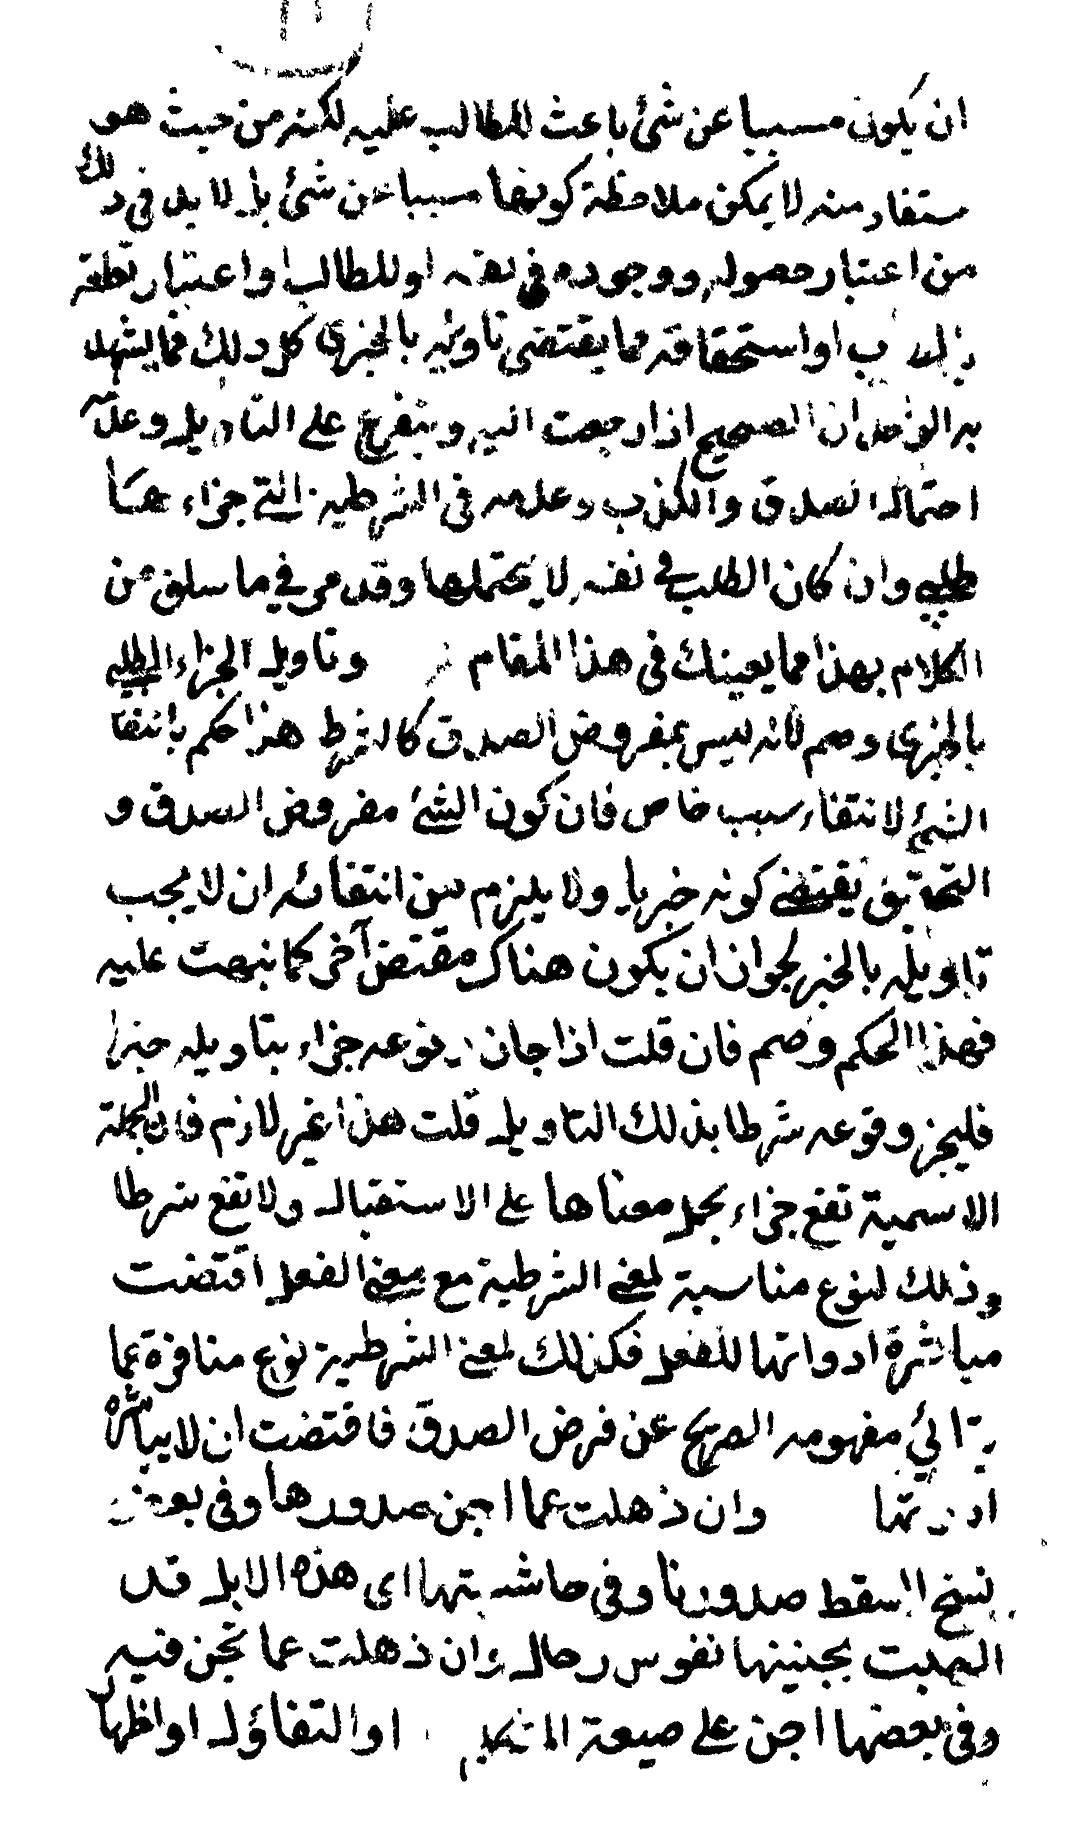 ان يكون مسببا عن شئ باعث للطالب عليه لكنه من حيث هو
مستفاد منه لا يمكن ملاحظة كونها مسببا عن شئ بل لا بد في ذلك
من اعتبار حصوله ووجوده في نفسه او للطالب او اعتبار تعلقه
او استحقاقه مما يقتضى تاويله بالخبرى كل ذلك مما يشهد
به الوجدان الصحيح اذا رجعت اليه ويتفرع على التاويل وعدمه
احتمال الصدق والكذب وعدمه في الشرطية التي جزاءها
طلبي وان كان الطلب في نفسه لا يحتملها وقد مر في ما سلف من
الكلام بهذا مما يعينك في هذا المقام وتاويل الجزاء الطلبي
بالخبرى وهم لانه ليس بمفروض الصدق كالشرط هذا حكم بانتفا
الشئ لانتفاء سبب خاص فان كون الشئ مفروض الصدق و
التحقيق يقتضي كونه خبريا ولا يلزم من انتفائه ان لا يجب
تاويله بالخبر لجواز ان يكون هناك مقتض آخر كما نبهت عليه
فهذا الحكم وهم فان قلت اذا جاز وقوعه جزاء بتاويله خبرا
فليجز وقوعه شرطا بذلك التاويل قلت هذا غير لازم فان الجملة
الاسمية تقع جزاء بحمل معناها على الاستقبال ولا تقع شرطا
وذلك لنوع مناسبة لمعنى الشرطية مع معنى الفعل اقتضت
مباشرة ادواتها للفعل فكذلك لمعنى الشرطية نوع منافرة عما
يتائي مفهومه الصريح عن فرض الصدق فاقتضت ان لا يباشره
ادواتها وان ذهلت عما اجن صدورها وفى بعض
نسخ السقط صدورنا وفى حاشيتها اى هذه الابل قد
التهبت بجنينها نفوس رحال وان ذهلت عما نحن فيه
وفى بعضها اجن على صيغة المتكلم او التفاؤل او اظهار